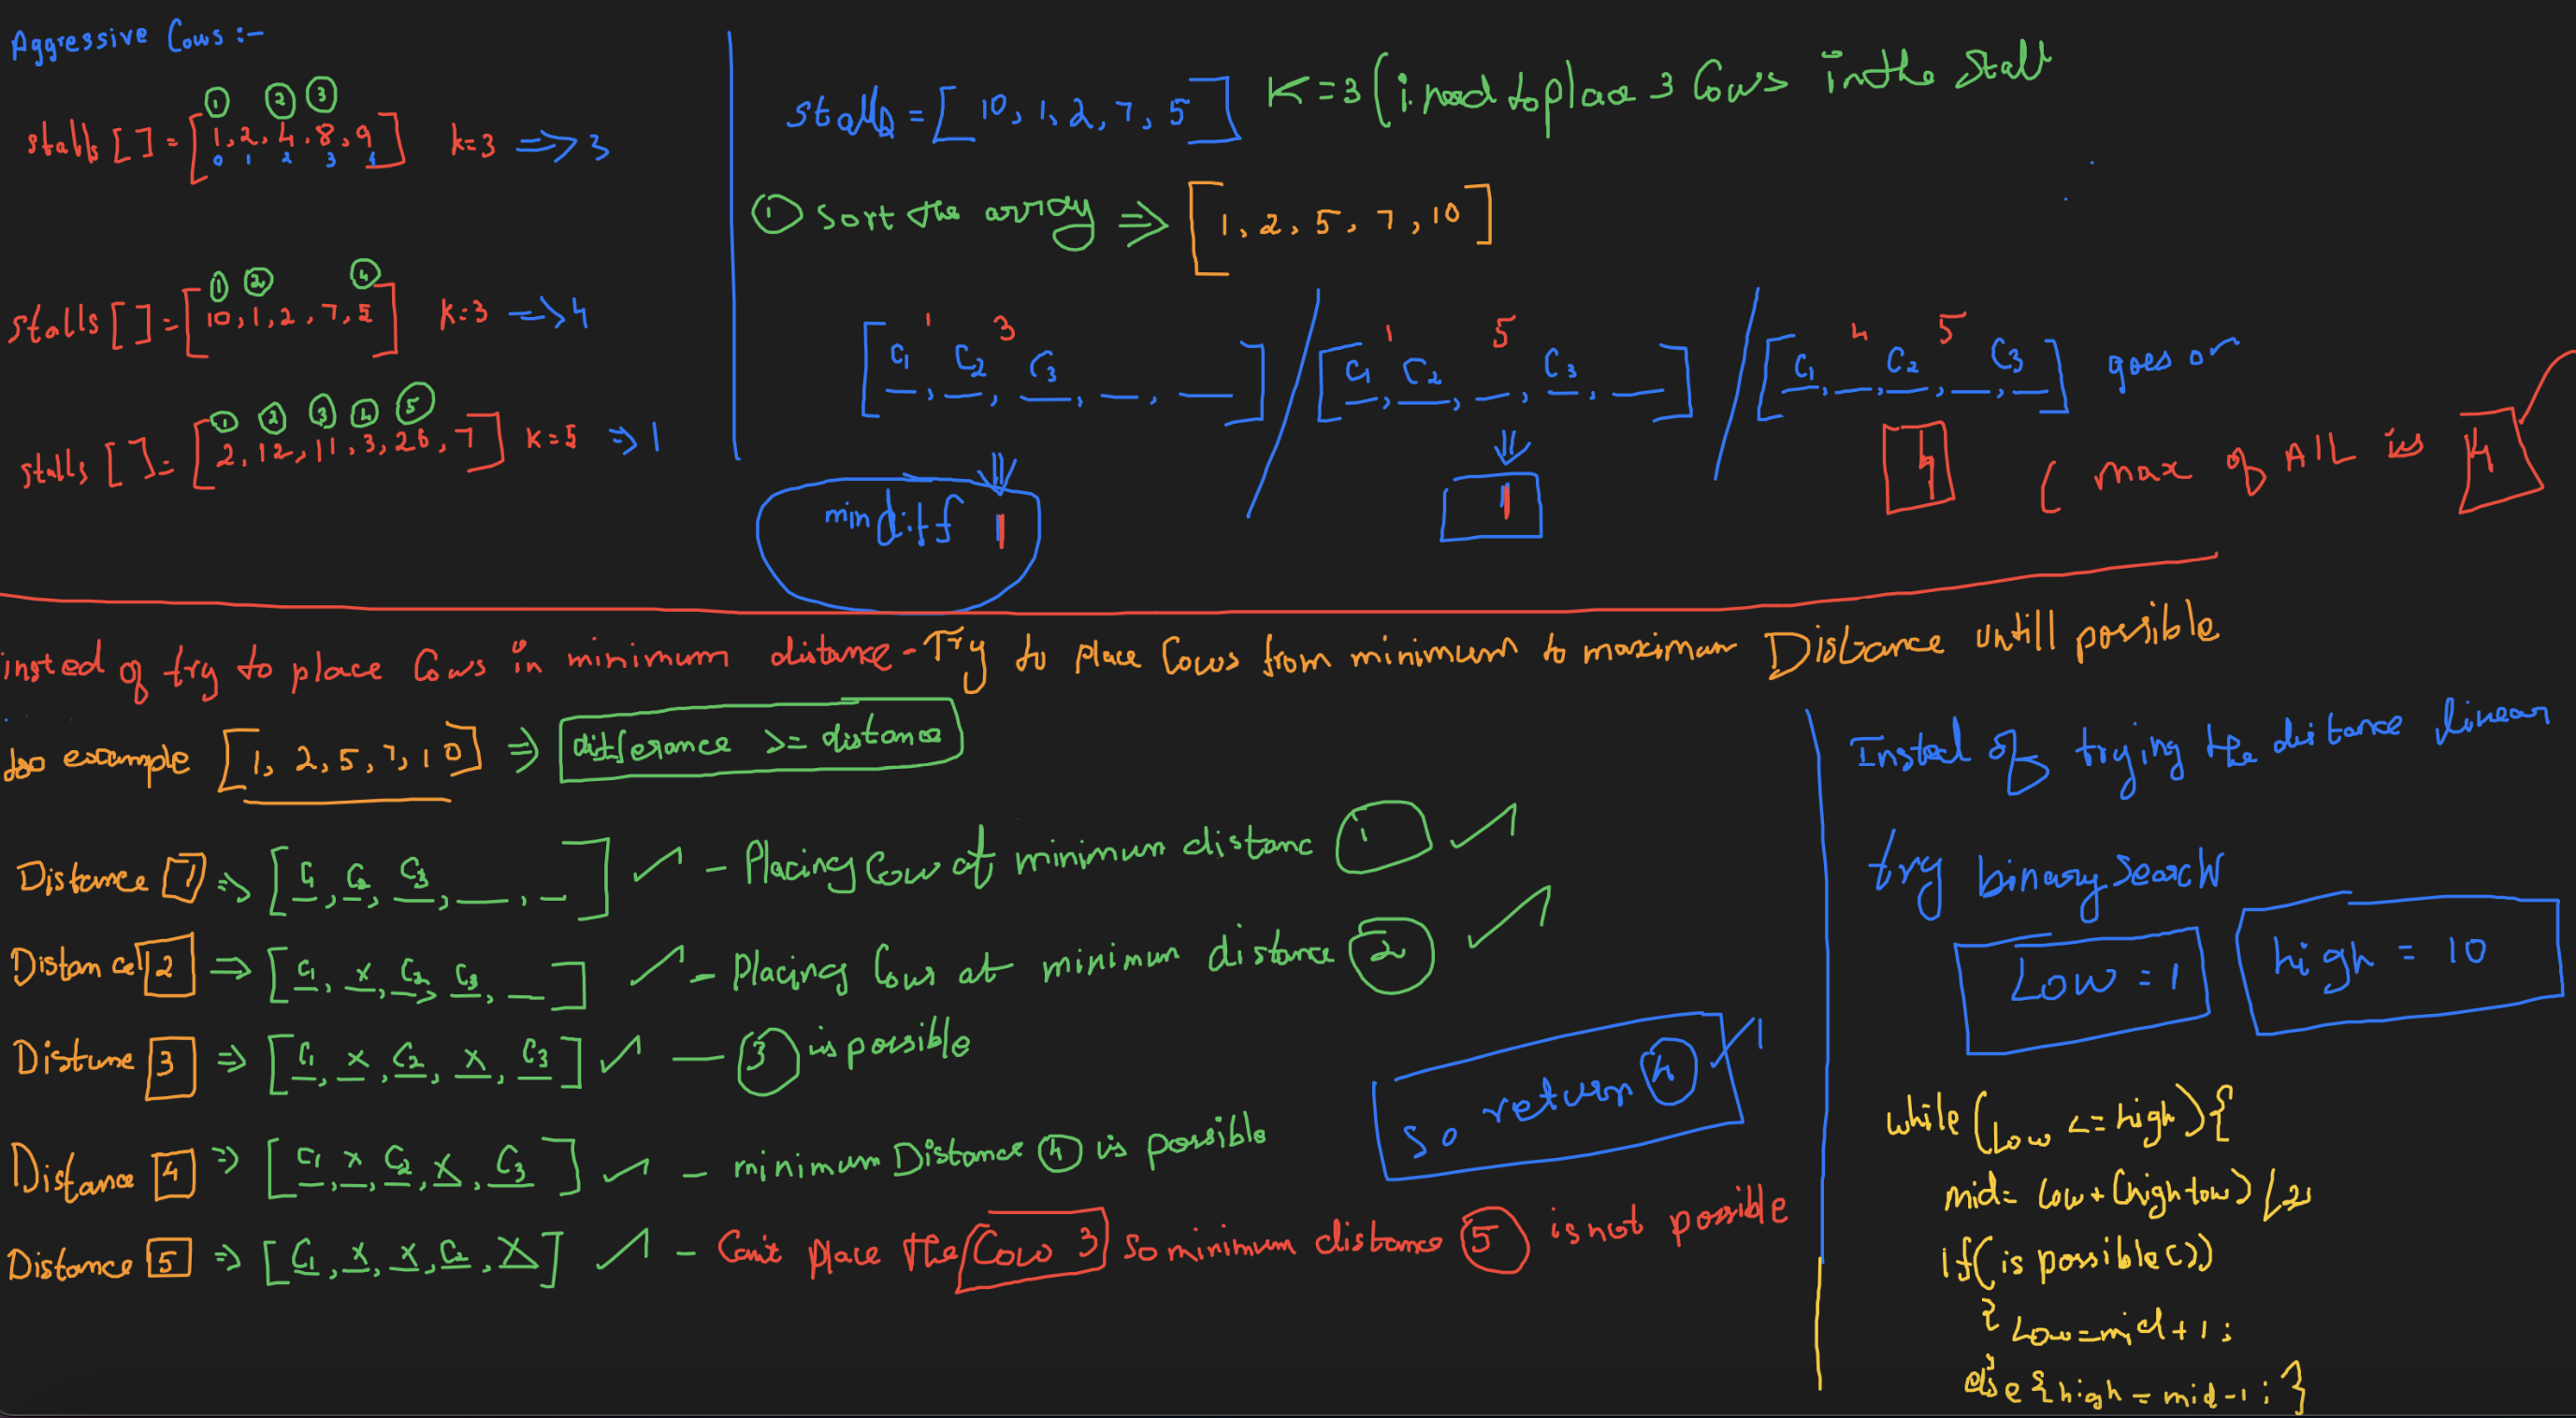 Aggressive Cows :-
① ② ③
stalls [ ] = [1, 2, 4, 8, 9] k=3 => 3
0 1 2 3 4
① ② ④
stalls [ ] = [10, 1, 2, 7, 5] k=3 => 4
① ② ③ ④ ⑤
stalls [ ] = [2, 12, 11, 3, 26, 7] k=5 => 1
stalls = [10, 1, 2, 7, 5] K=3 (i need to place 3 Cows in the stall
① sort the array => [1, 2, 5, 7, 10]
1 3
[C1, C2, C3, __, __]
min diff 1
1 5
[C1, C2, __, C3, __]
1
4 5
[C1, __, C2, __, C3] goes on
4
( max of All is 4
insted of try to place Cows in minimum distance - Try to place Cows from minimum to maximum Distance untill possible
example [1, 2, 5, 7, 10] => differance >= distance
Distance 1 => [C1, C2, C3, __, __] ✓ - Placing Cow at minimum distanc ① ✓
Distance 2 => [C1, x, C2, C3, __] ✓ - placing Cows at minimum distance ② ✓
Distune 3 => [C1, x, C2, x, C3] ✓ - ③ is possible
Distance 4 => [C1, x, C2, x, C3] ✓ - minimum Distance ④ is possible
Distance 5 => [C1, x, x, C2, x] ✓ - Can't place the Cow 3 so minimum distance ⑤ is not possible
so return ④ ✓
Insted of trying the distance linear
try binary search
Low = 1
high = 10
while (Low <= high) {
mid = Low + (high-low) / 2;
if (is possible())
{ Low = mid + 1;
}
else { high = mid - 1; }